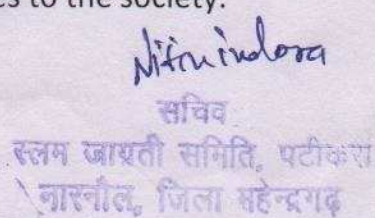 es to the society.
Nitin indora
सचिव
स्लम जाग्रती समिति, पटीकरा
नारनौल, जिला महेन्द्रगढ़